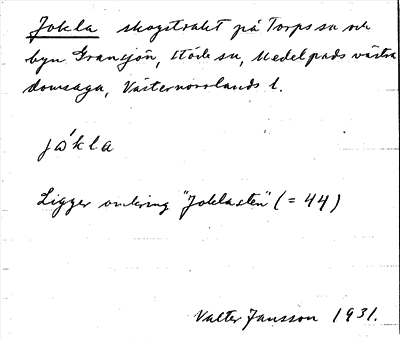 Jokla skogstrakt på Torps sn och
byn Gransjön, Stöde sn, Medelpads västra
domsaga, Västernorrlands l.
jώkla
Ligger omkring "Joklasten" (= 44)
Valter Jansson 1931.